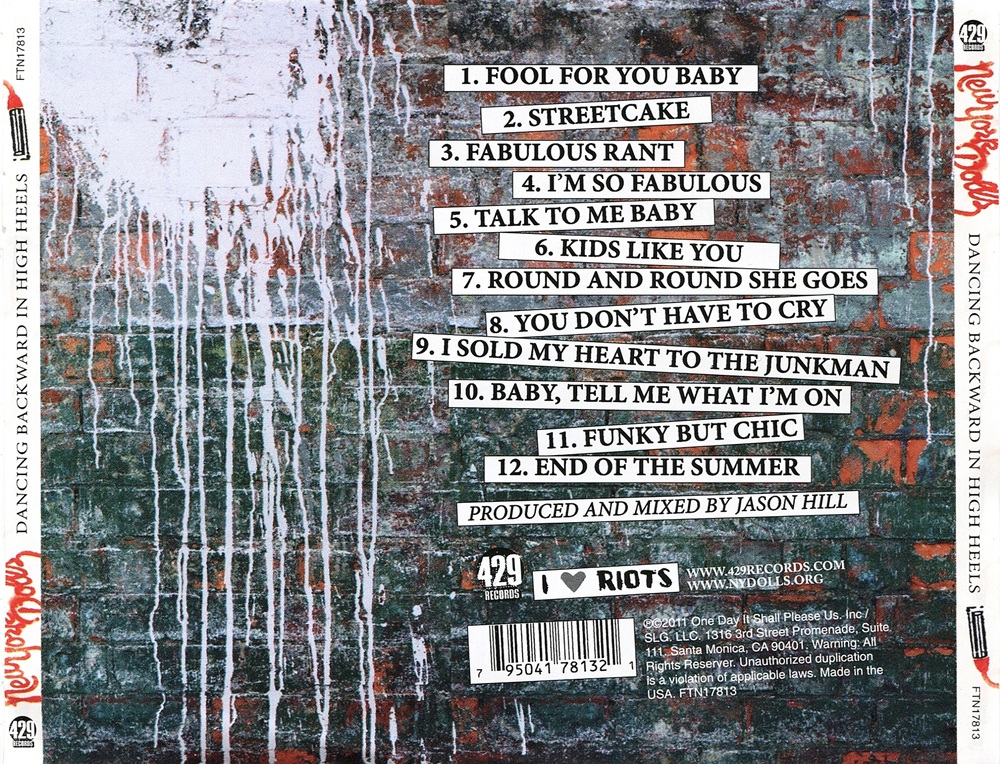 FTN17813
DANCING BACKWARD IN HIGH HEELS
New York Dolls
429
RECORDS
1. FOOL FOR YOU BABY
2. STREETCAKE
3. FABULOUS RANT
4. I'M SO FABULOUS
5. TALK TO ME BABY
6. KIDS LIKE YOU
7. ROUND AND ROUND SHE GOES
8. YOU DON'T HAVE TO CRY
9. I SOLD MY HEART TO THE JUNKMAN
10. BABY, TELL ME WHAT I'M ON
11. FUNKY BUT CHIC
12. END OF THE SUMMER
PRODUCED AND MIXED BY JASON HILL
429
RECORDS
I ♥ RIOTS
WWW.429RECORDS.COM
WWW.NYDOLLS.ORG
7 95041 78132 1
℗©2011 One Day It Shall Please Us, Inc./
SLG, LLC. 1316 3rd Street Promenade, Suite
111, Santa Monica, CA 90401. Warning: All
Rights Reserver. Unauthorized duplication
is a violation of applicable laws. Made in the
USA. FTN17813
429
RECORDS
New York Dolls
DANCING BACKWARD IN HIGH HEELS
FTN17813